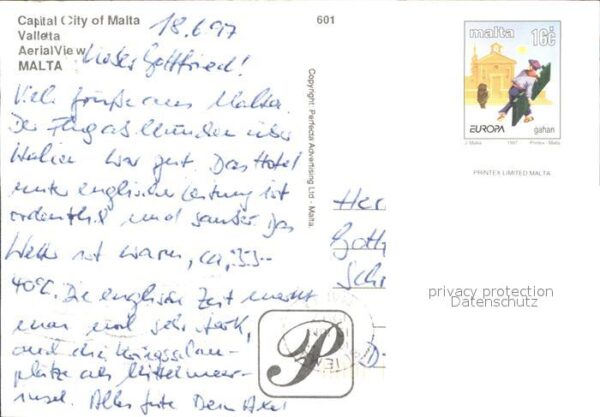 Capital City of Malta
Valletta
Aerial View
MALTA
18.6.97
Lieber Gottfried!
Viele Grüße aus Malta.
Der Flug ab München über
Italien war gut. Das Hotel
unter englischer Leitung ist
ordentlich und sauber. Das
Wetter ist warm, ca. 35-
40°C. Die englische Zeit merkt
man noch sehr stark,
auch die Kriegsschau-
plätze als Mittelmeer-
insel. Alles Gute Dein Axel
601
Copyright: Perfecta Advertising Ltd - Malta.
malta 16c
EUROPA
gahan
J. Malta 1997 Printex - Malta
PRINTEX LIMITED MALTA
Her
Gott
Sch
D-
P
privacy protection
Datenschutz